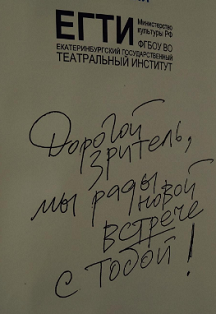 ЕГТИ
Министерство
культуры РФ
ФГБОУ ВО
ЕКАТЕРИНБУРГСКИЙ ГОСУДАРСТВЕННЫЙ
ТЕАТРАЛЬНЫЙ ИНСТИТУТ
Дорогой
зритель,
мы рады новой
встрече
с тобой!